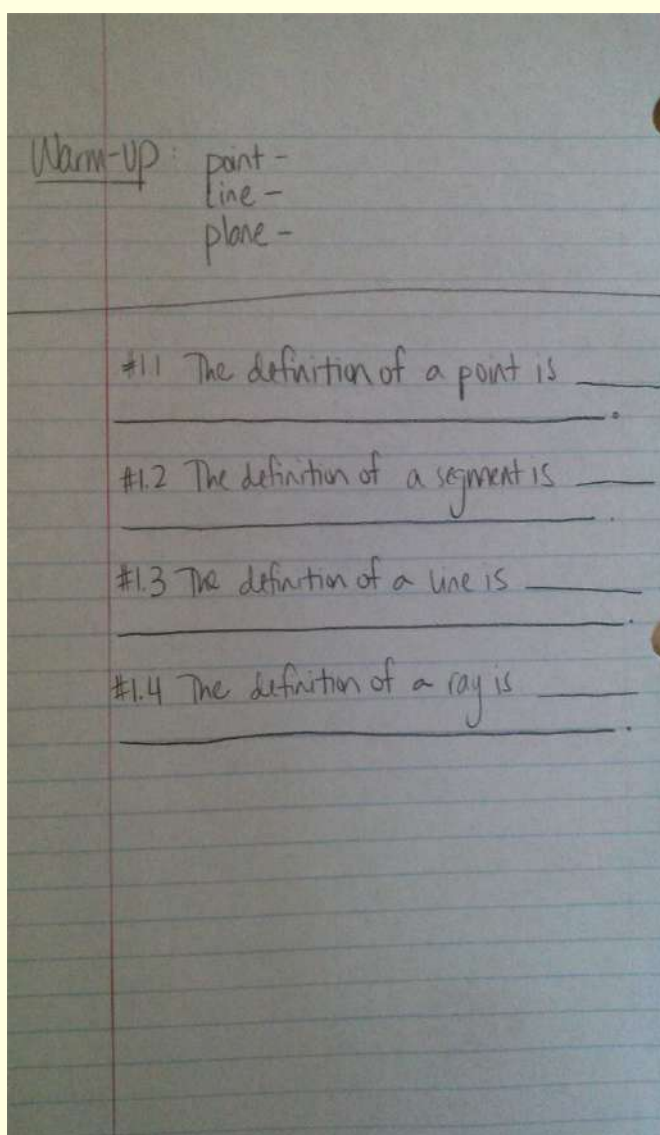 Warm-up: point -
line -
plane -
#1.1 The definition of a point is ____
____.
#1.2 The definition of a segment is ____
____.
#1.3 The definition of a line is ____
____.
#1.4 The definition of a ray is ____
____.